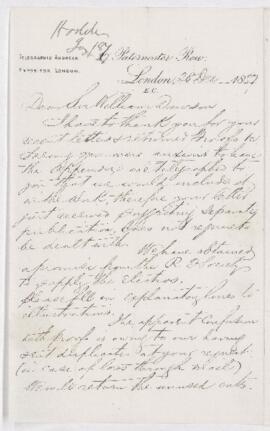 Hodder
27 Paternoster Row.
TELEGRAPHIC ADDRESS
EXPOSITOR LONDON.
London, 28 Dec 1887
E.C.
Dear Sir William Dawson
I have to thank you for your
recent letters & returned proofs
you were anxious to have
the Appendix we telegraphed to
you that we would include it
in the book, therefore your letter
just received suggesting separate
publication does not require
be dealt with.
We have obtained
a promise from the R. Society
to supply the electros.
Please fill in explanatory lines to
illustrations.
The apparent confusion
with proofs is owing to our having
sent duplicates at your request
(in case of loss through mail)
We will return the unused cuts.